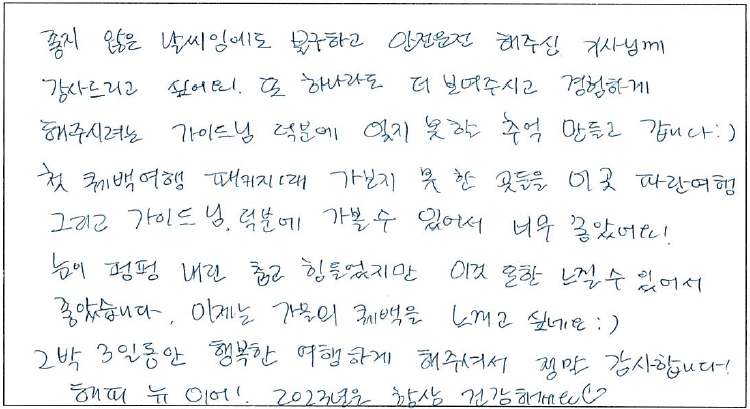 좋지 않은 날씨임에도 불구하고 안전운전 해주신 기사님께
감사드리고 싶어요. 또 하나라도 더 보여주시고 경험하게
해주시려는 가이드님 덕분에 잊지 못한 추억 만들고 갑니다:)
첫 퀘백여행 패키지때 가보지 못 한 곳들을 이곳 파란여행
그리고 가이드님, 덕분에 가볼 수 있어서 너무 좋았어요!
눈이 펑펑 내린 춥고 힘들었지만 이것 또한 느낄 수 있어서
좋았습니다. 이제는 가을의 퀘백을 느끼고 싶네요:)
2박 3일동안 행복한 여행하게 해주셔서 정말 감사합니다!
해피 뉴 이어! 2023년은 항상 건강하세요♡